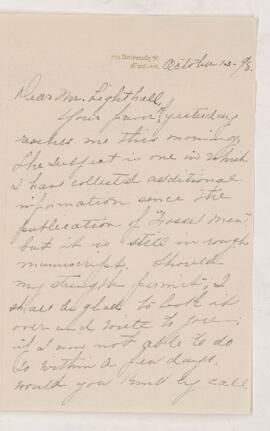 University St
October 13 - 98
Dear Mr. Lighthall,
Your favor of yesterday
reaches me this morning.
The subject is one in which
I have collected additional
information since the
publication of "Fossil Men",
but it is still in rough
manuscript. Should
my strength permit, I
shall be glad to look it
over and write to you;
if I am not able to do
so within a few days,
would you kindly call